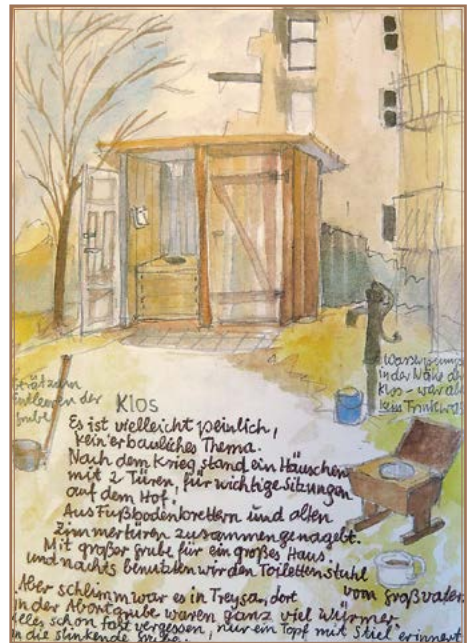 Gerät zum
Entleeren der
Grube
Wasserpumpe
in der Nähe
Klos - war
kein Trinkwas
Klos
Es ist vielleicht peinlich,
kein erbauliches Thema.
Nach dem Krieg stand ein Häuschen
mit 2 Türen, für wichtige Sitzungen
auf dem Hof.
Aus Fußbodenbrettern und alten
Zimmertüren zusammengenagelt.
Mit großer Grube für ein großes Haus.
und nachts benutzten wir den Toilettenstuhl
vom Großvater.
Aber schlimm war es in Treysa, dort
in der Abortgrube waren ganz viel Würmer.
alles schon fast vergessen, nur ein Topf mit Stiel erinnert
in die stinkende